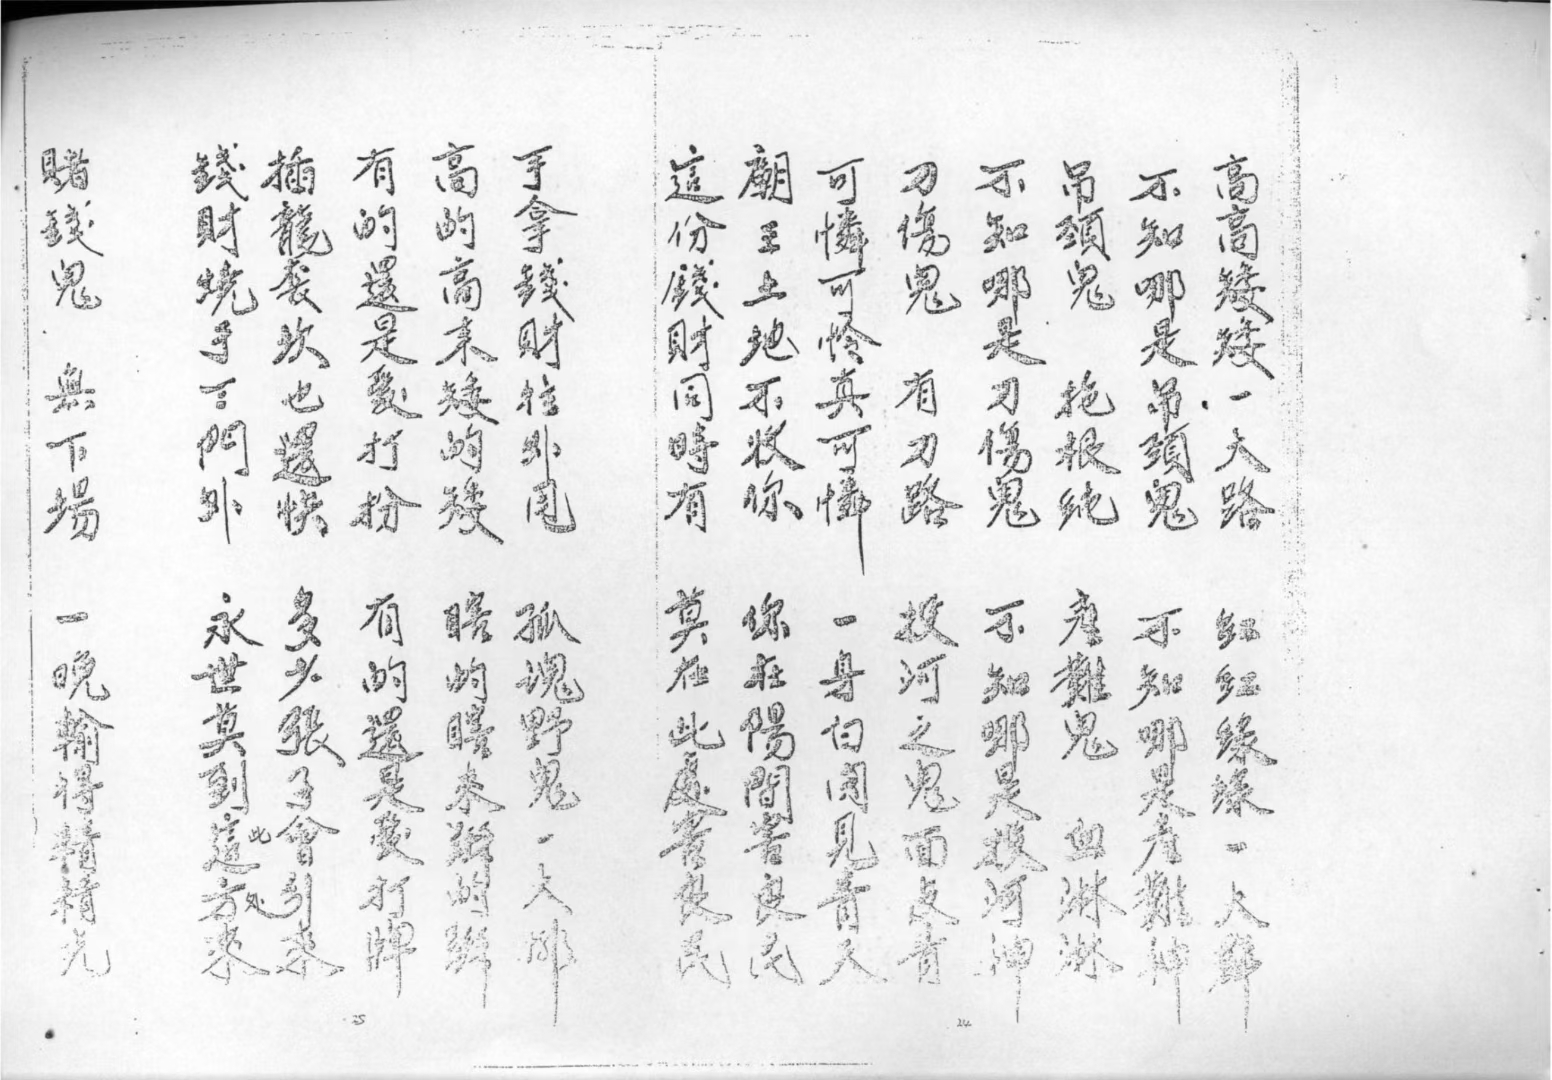 高高矮矮一大路 紅紅綠綠一大群
不知哪是吊頸鬼 不知哪是产難神
吊頸鬼 拖根绳 产難鬼 血淋淋
不知哪是刀傷鬼 不知哪是投河神
刀傷鬼 有刀路 投河之鬼面皮青
可憐可怜真可憐 一身白肉見青天
廟王土地不收你 你在陽間害良民
這份錢財同時有 莫在此處害良民
24
手拿錢財往外甩 孤魂野鬼一大排
高的高来矮的矮 瞎的瞎来跛的跛
有的還是爱打扮 有的還是爱打牌
插龍袞坎也還快 多少張子會引来
錢財燒手丟門外 永世莫到這方来
此处
25
賭錢鬼 無下場 一晚輸得精精光